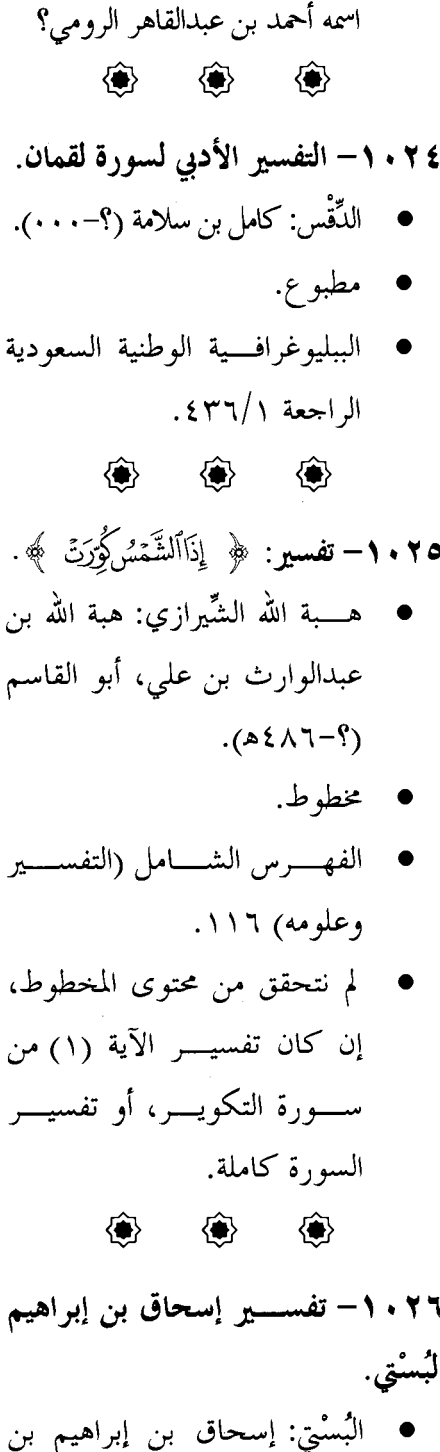 اسمه أحمد بن عبدالقاهر الرومي؟
١٠٢٤- التفسير الأدبي لسورة لقمان.
● الدِّقْس: كامل بن سلامة (؟-٠٠٠).
● مطبوع.
● الببليوغرافية الوطنية السعودية
الراجعة ٤٣٦/١.
١٠٢٥- تفسير: ﴿ إِذَا ٱلشَّمْسُ كُوِّرَتْ ﴾.
● هبة الله الشِّيرازي: هبة الله بن
عبدالوارث بن علي، أبو القاسم
(؟-٤٨٦ه).
● مخطوط.
● الفهرس الشامل (التفسير
وعلومه) ١١٦.
● لم نتحقق من محتوى المخطوط،
إن كان تفسير الآية (١) من
سورة التكوير، أو تفسير
السورة كاملة.
١٠٢٦- تفسير إسحاق بن إبراهيم
لبُسْتي.
● البُسْتي: إسحاق بن إبراهيم بن